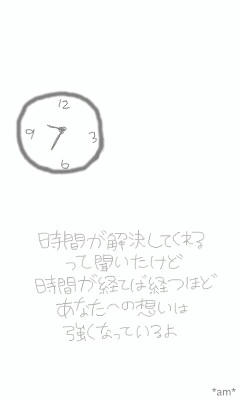 12
9
3
6
時間が解決してくれる
って聞いたけど
時間が経てば経つほど
あなたへの想いは
強くなっているよ
*am*